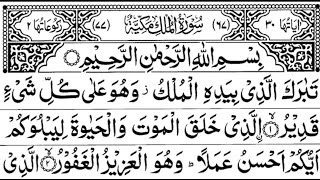 اٰیاتھا ٣٠ (٦٧) سُوْرَةُ الْمُلْكِ مَكِّیَّةٌ (٧٧) رکوعاتھا ٢
بِسْمِ اللّٰهِ الرَّحْمٰنِ الرَّحِیْمِ
تَبٰرَكَ الَّذِیْ بِیَدِهِ الْمُلْكُ ز وَهُوَ عَلٰی كُلِّ شَیْءٍ
قَدِیْرُ ۨ ۝١ الَّذِیْ خَلَقَ الْمَوْتَ وَالْحَیٰوةَ لِیَبْلُوَكُمْ
اَیُّكُمْ اَحْسَنُ عَمَلًا ؕ وَهُوَ الْعَزِیْزُ الْغَفُوْرُ ۝٢ الَّذِیْ